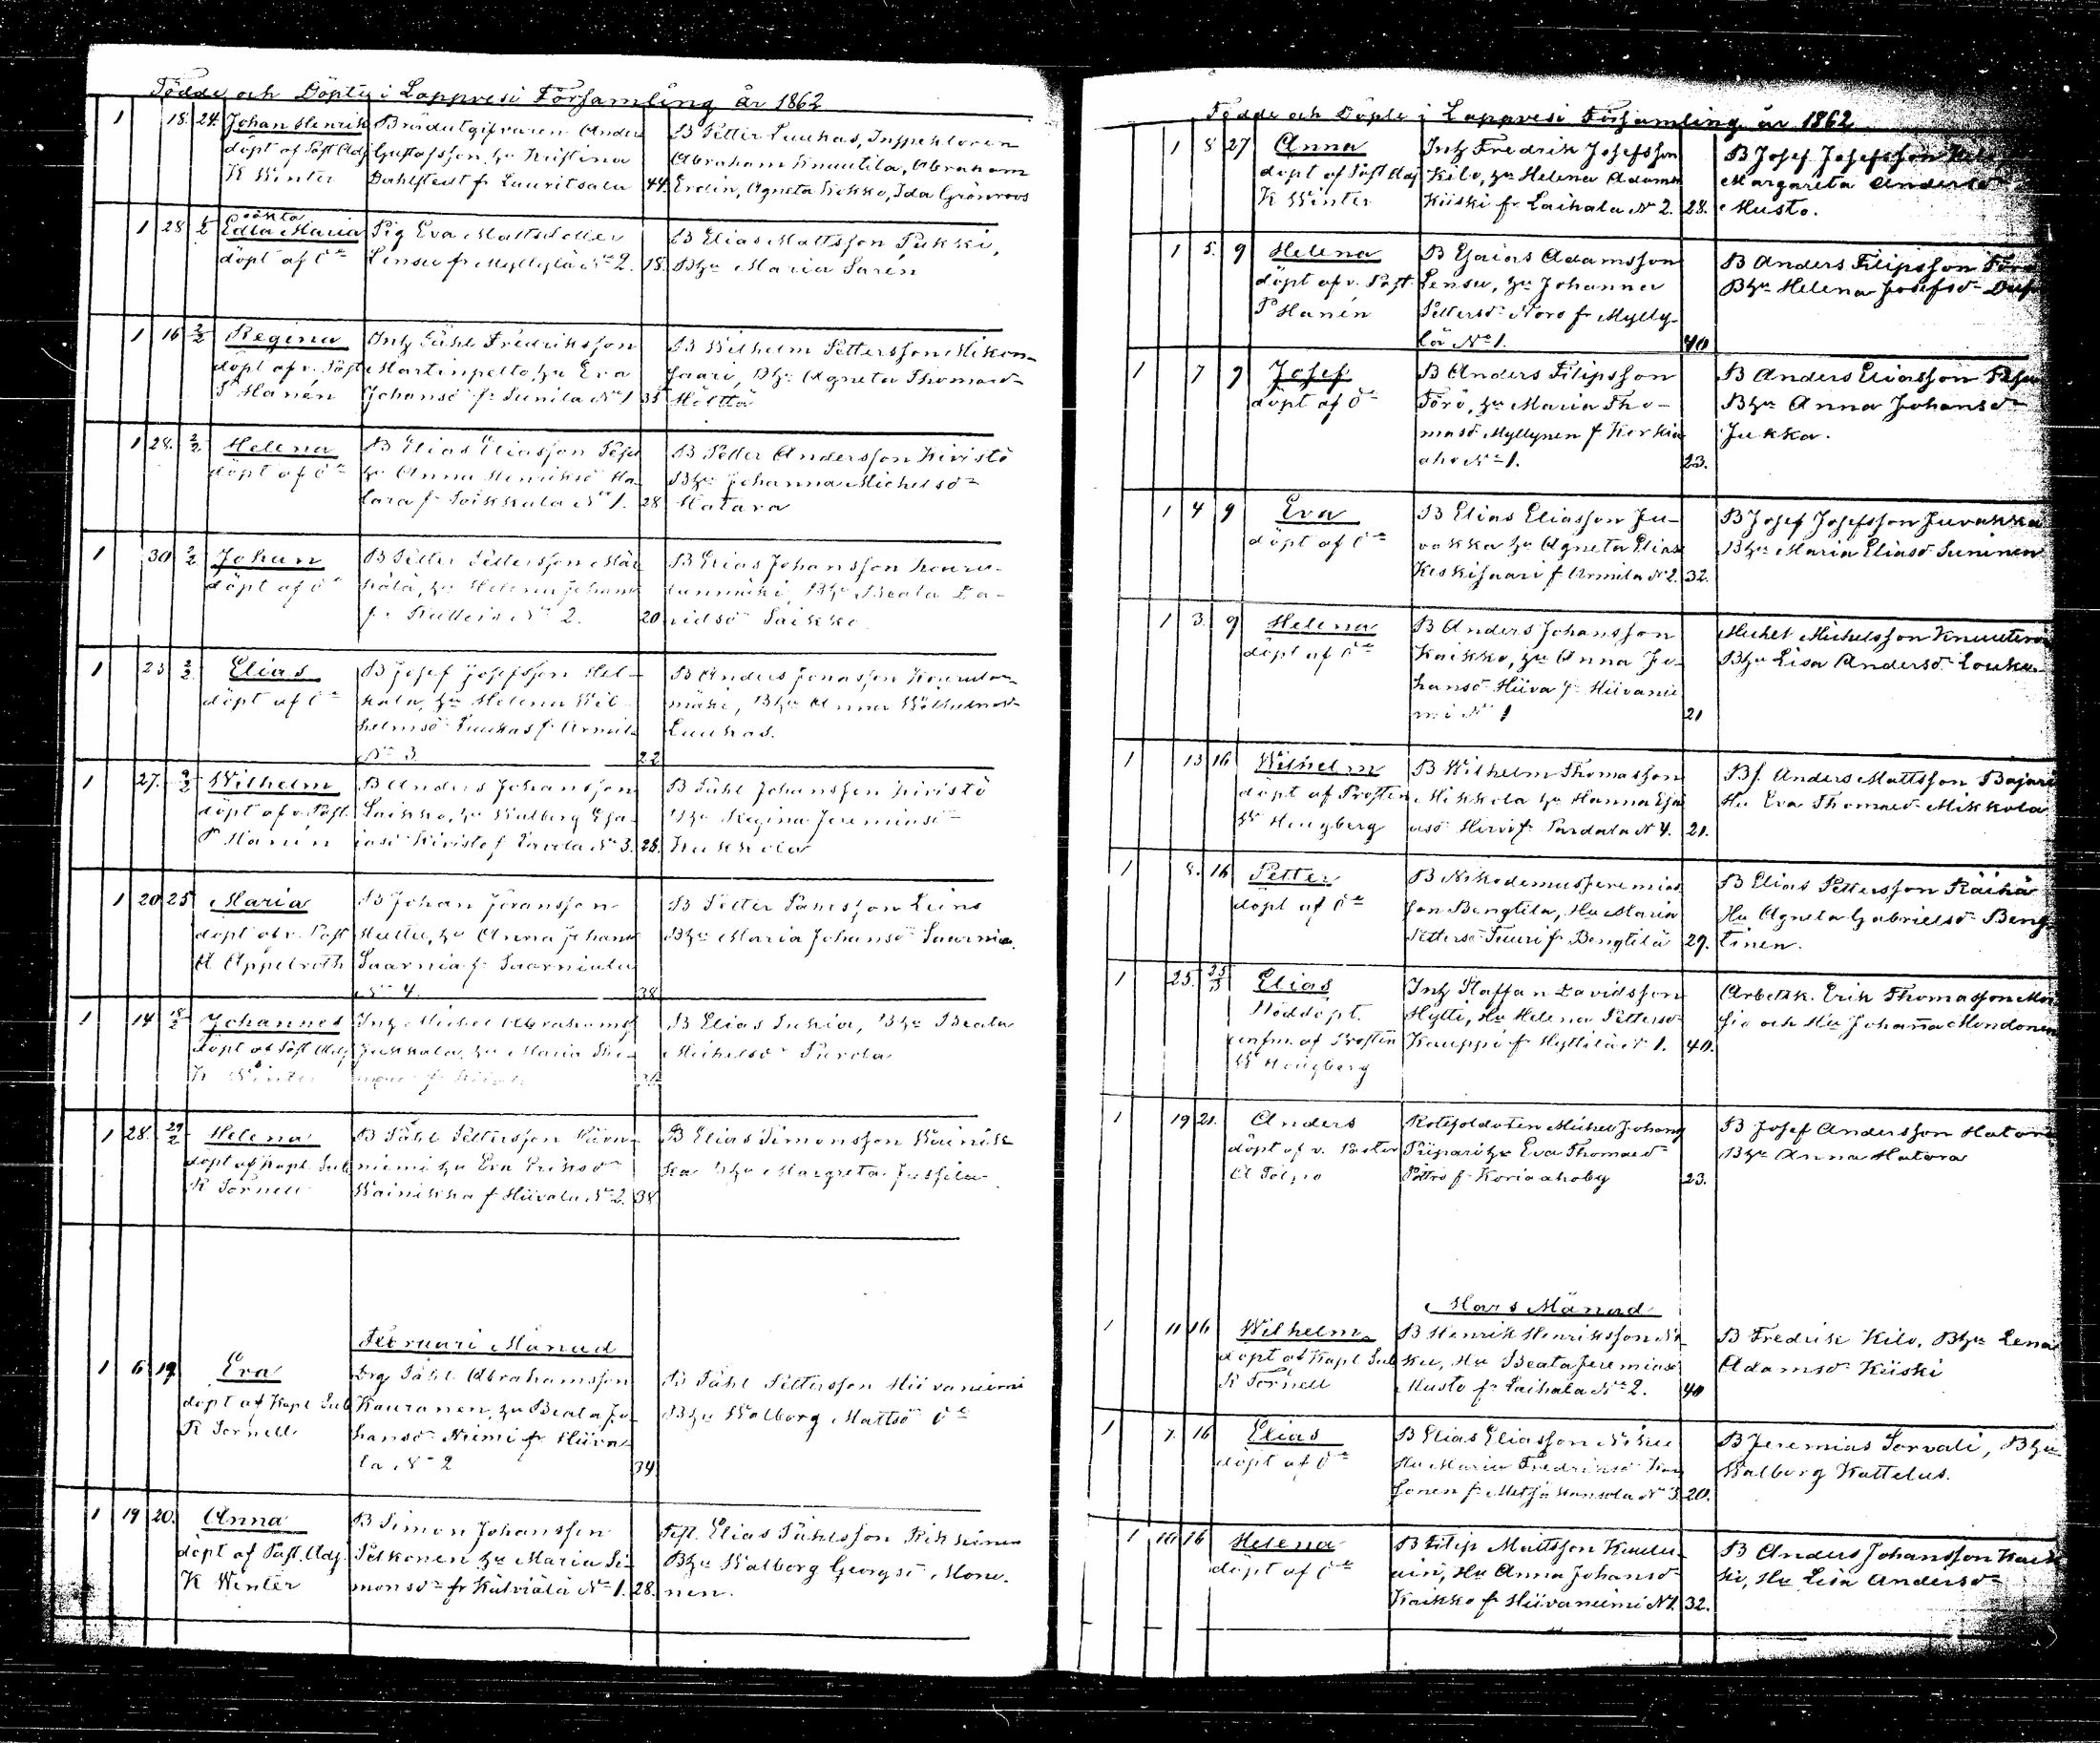 Födde och Döpte i Lappvesi Församling år 1862
1 18. 24. Johan Henrik
döpt af Past Adj
K Winter
Brödutgifvaren Anders
Gustafsson, hu Kristina
Dahlstedt fr Lauritsala 44.
B Petter Luukas, Inspektoren
Abraham Knuutila, Abraham
Erdin, Agneta Kekko, Ida Grönroos
1 28 oäkta
Edla Maria
döpt af Do
Pig Eva Matts dotter
Lensu fr Myllylä No 2. 18.
B Elias Mattsson Pukki,
Bhu Maria Saren
1 16 2/2 Regina
döpt af v. Past
P Hanén
Inh Påhl Fredriksson
Martinpelto, hu Eva
Johansd fr Sunila No 1 35
B Wilhelm Pettersson Mikon-
saari, Bhu Agneta Thomasd
Mälttä
1 28. 2/2 Helena
döpt af Do
B Elias Eliasson
hu Anna Henriksd Ha-
tara fr Toikkala No 1. 28
B Petter Andersson Kivistö
Bhu Johanna Michelsd
Hatara
1 30 2/2 Johan
döpt af Do
B Petter Pettersson
hu Helena Johansd
No 2. 20
B Elias Johansson
Bhu Beata Da-
vidsd Saikko
1 23 2/2 Elias
döpt af Do
B Josef Josefsson Hel-
kala, hu Helena Wil-
helmsd Luukas fr Armila
No 3. 22
B Anders Jonasson
Bhu Anna Wilhelmsd
Luukas.
1 27. 9/2 Wilhelm
döpt af v. Past.
P Hanén
B Anders Johansson
Saikko, hu Walborg Esa-
iasd Kivistö f No 3. 28.
B Påhl Johansson Kivistö
Bhu Regina Jeremiasd
Kukkola
1 20 25 Maria
döpt af v. Past
A Appelroth
B Johan Jöransson
hu Anna Johansd
Saarnia fr Saarniala
No 4. 38
B Petter Påhlsson Leino
Bhu Maria Johansd Saarnia.
1 14 18/2 Johannes
döpt af Past Adj
K Winter
Inh Michel Abrahamss
Jukkala, hu Maria
B Elias Suhia, Bhu Beata
Michelsd Purola
1 28. 29/2 Helena
döpt af Kapl. Sub
R Törnell
B Påhl Pettersson
niemi hu Eva Eriksd
Wainikka f Hiivala No 2. 38
B Elias Simonsson Wainik-
ka Bhu Margreta Jussila
Februari Månad
1 6 19 Eva
döpt af Kapl Sub
R Törnell.
Drg Påhl Abrahamsson
Kauranen, hu Beata Jo-
hansd Niemi fr Hiiva-
la No 2 34
B Påhl Pettersson Hiivaniemi
Bhu Walborg Mattsd Do
1 19 20. Anna
döpt af Past. Adj.
K Winter
B Simon Johansson
Pelkonen hu Maria Si-
monsd fr Kälviälä No 1. 28.
Elias Påhlsson Rikkinen
Bhu Walborg Georgsd Mono-
nen.
Födde och Döpte i Lappvesi Församling år 1862
1 8 27 Anna
döpt af Past Adj
K Winter
Inh Fredrik Josefsson
Kilo, hu Helena Adamsd
Kiiski fr Laihala No 2. 28.
B Josef Josefsson
Margareta Andersd
Musto.
1 5. 9 Helena
döpt af v. Past.
P Hanén
B Esaias Adamsson
Lensu, hu Johanna
Pettersd Noro fr Mylly-
lä No 1. 40
B Anders Filipsson
Bhu Helena Josefsd
1 7 9 Josef
döpt af Do
B Anders Filipsson
Törö, hu Maria Tho-
masd Myllynen f Korkia
aho No 1. 23.
B Anders Eliasson
Bhu Anna Johansd
Jukka.
1 4 9 Eva
döpt af Do
B Elias Eliasson Ju-
vakka hu Agneta Eliasd
Keskisaari f Armila No 2. 32.
B Josef Josefsson Juvakka
Bhu Maria Eliasd Suninen
1 3. 9 Helena
döpt af Do
B Anders Johansson
Kaikko, hu Anna Jo-
hansd Hiiva fr Hiivanie
mi No 1 21
Michel Michelsson
Bhu Lisa Andersd
1 13 16 Wilhelm
döpt af Prosten
W Hougberg
B Wilhelm Thomasson
Mikkola hu Hanna Esa
iasd Hirvi fr Pardala No 4. 21.
Bs. Anders Mattsson Bajari
Hu Eva Thomasd Mikkola
1 8. 16 Petter
döpt af Do
B Nikodemus Jeremias
son Bengtila, Hu Maria
Pettersd Tuuri fr Bengtilä 29.
B Elias Pettersson Räihä
Hu Agneta Gabrielsd Beng-
tinen.
1 25. Elias
Nöddöpt.
confirm. af Prosten
W Hougberg
Inh Staffan Davidsson
Hytti, Hu Helena Pettersd
Kauppi fr Hyttilä No 1. 40.
Arbetsk. Erik Thomasson
och Hu Johanna Mondonen
1 19 21. Anders
döpt af v. Pastor
A
Rotesoldaten Michel Johans
Piipari hu Eva Thomasd
fr Koriaahoby 23.
B Josef Andersson Hatara
Bhu Anna Hatara
Mars Månad
1 11 16 Wilhelm
döpt af Kapl Sub
R Törnell
B Henrik Henriksson Ni-
ku, Hu Beata Jeremiasd
Musto fr Laihala No 2. 40
B Fredrik Kilo, Bhu Lena
Adamsd Kiiski
1 7. 16 Elias
döpt af Do
B Elias Eliasson Niku
Hu Maria Fredriksd
fr No 3. 20.
B Jeremias Sorvali, Bhu
Walborg Kattelus.
1 10 16 Helena
döpt af Do
B Filip Mattsson
Hu Anna Johansd
Kaikko fr Hiivaniemi No 1. 32.
B Anders Johansson
Hu Lisa Andersd